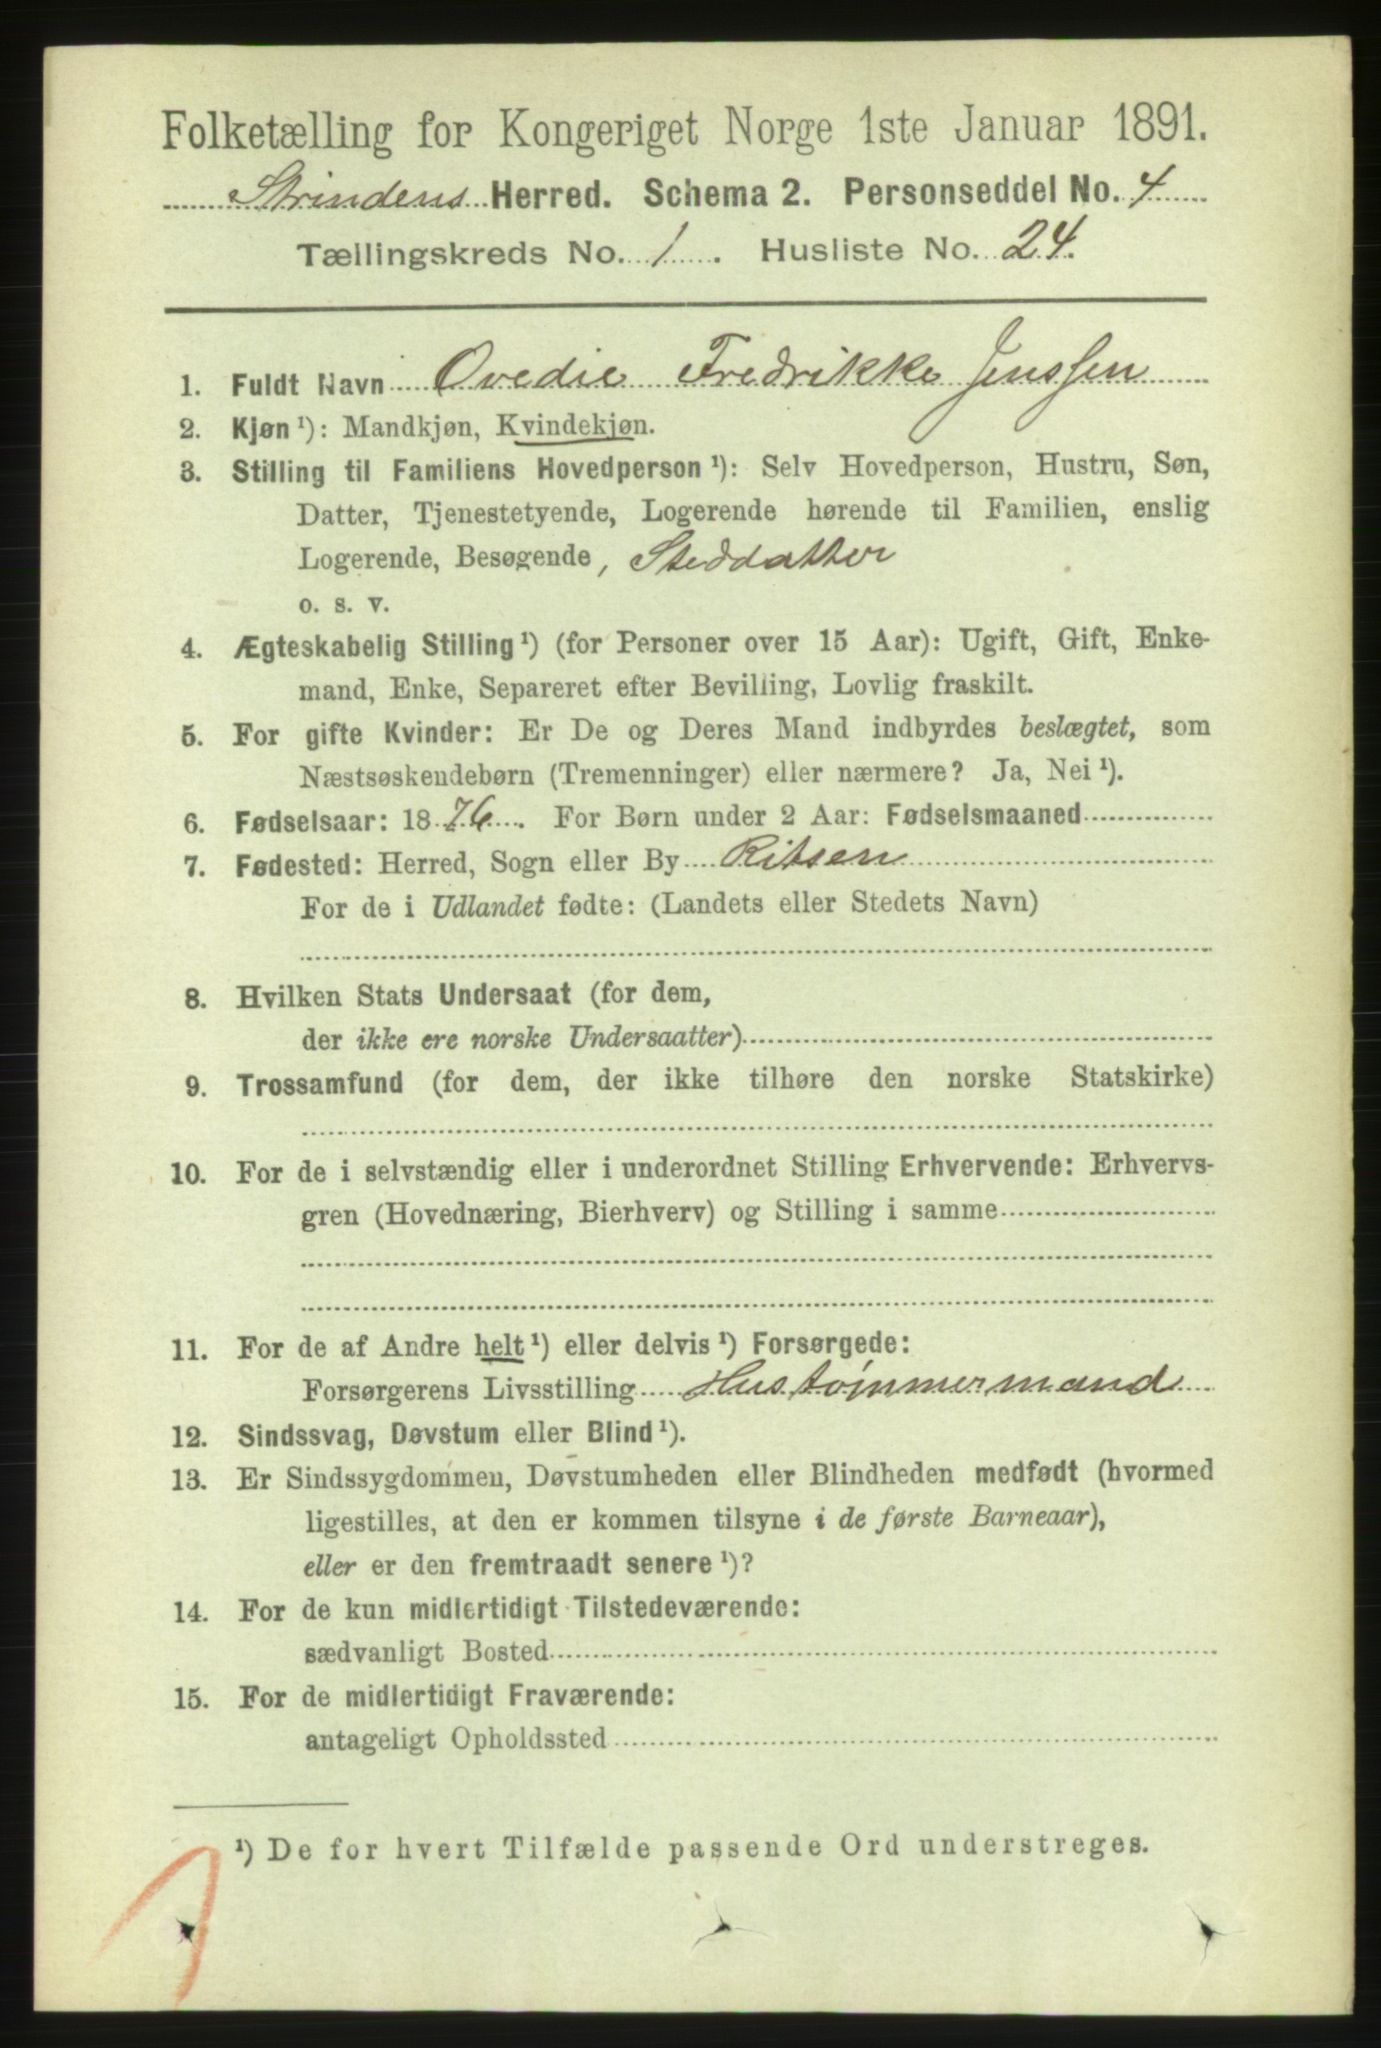 Folketælling for Kongeriget Norge 1ste Januar 1891.
Strindens Herred. Schema 2. Personseddel No. 4
Tællingskreds No. 1. Husliste No. 24.
1. Fuldt Navn Ovedie Fredrikke Jenssen
2. Kjøn ¹): Mandkjøn, Kvindekjøn.
3. Stilling til Familiens Hovedperson ¹): Selv Hovedperson, Hustru, Søn,
Datter, Tjenestetyende, Logerende hørende til Familien, enslig
Logerende, Besøgende, Steddatter
o. s. v.
4. Ægteskabelig Stilling ¹) (for Personer over 15 Aar): Ugift, Gift, Enke-
mand, Enke, Separeret efter Bevilling, Lovlig fraskilt.
5. For gifte Kvinder: Er De og Deres Mand indbyrdes beslægtet, som
Næstsøskendebørn (Tremenninger) eller nærmere? Ja, Nei ¹).
6. Fødselsaar: 1876. For Børn under 2 Aar: Fødselsmaaned
7. Fødested: Herred, Sogn eller By Ritsen
For de i Udlandet fødte: (Landets eller Stedets Navn)
8. Hvilken Stats Undersaat (for dem,
der ikke ere norske Undersaatter)
9. Trossamfund (for dem, der ikke tilhøre den norske Statskirke)
10. For de i selvstændig eller i underordnet Stilling Erhvervende: Erhvervs-
gren (Hovednæring, Bierhverv) og Stilling i samme
11. For de af Andre helt ¹) eller delvis ¹) Forsørgede:
Forsørgerens Livsstilling Hustømmermand
12. Sindssvag, Døvstum eller Blind ¹).
13. Er Sindssygdommen, Døvstumheden eller Blindheden medfødt (hvormed
ligestilles, at den er kommen tilsyne i de første Barneaar),
eller er den fremtraadt senere ¹)?
14. For de kun midlertidigt Tilstedeværende:
sædvanligt Bosted
15. For de midlertidigt Fraværende:
antageligt Opholdssted
¹) De for hvert Tilfælde passende Ord understreges.